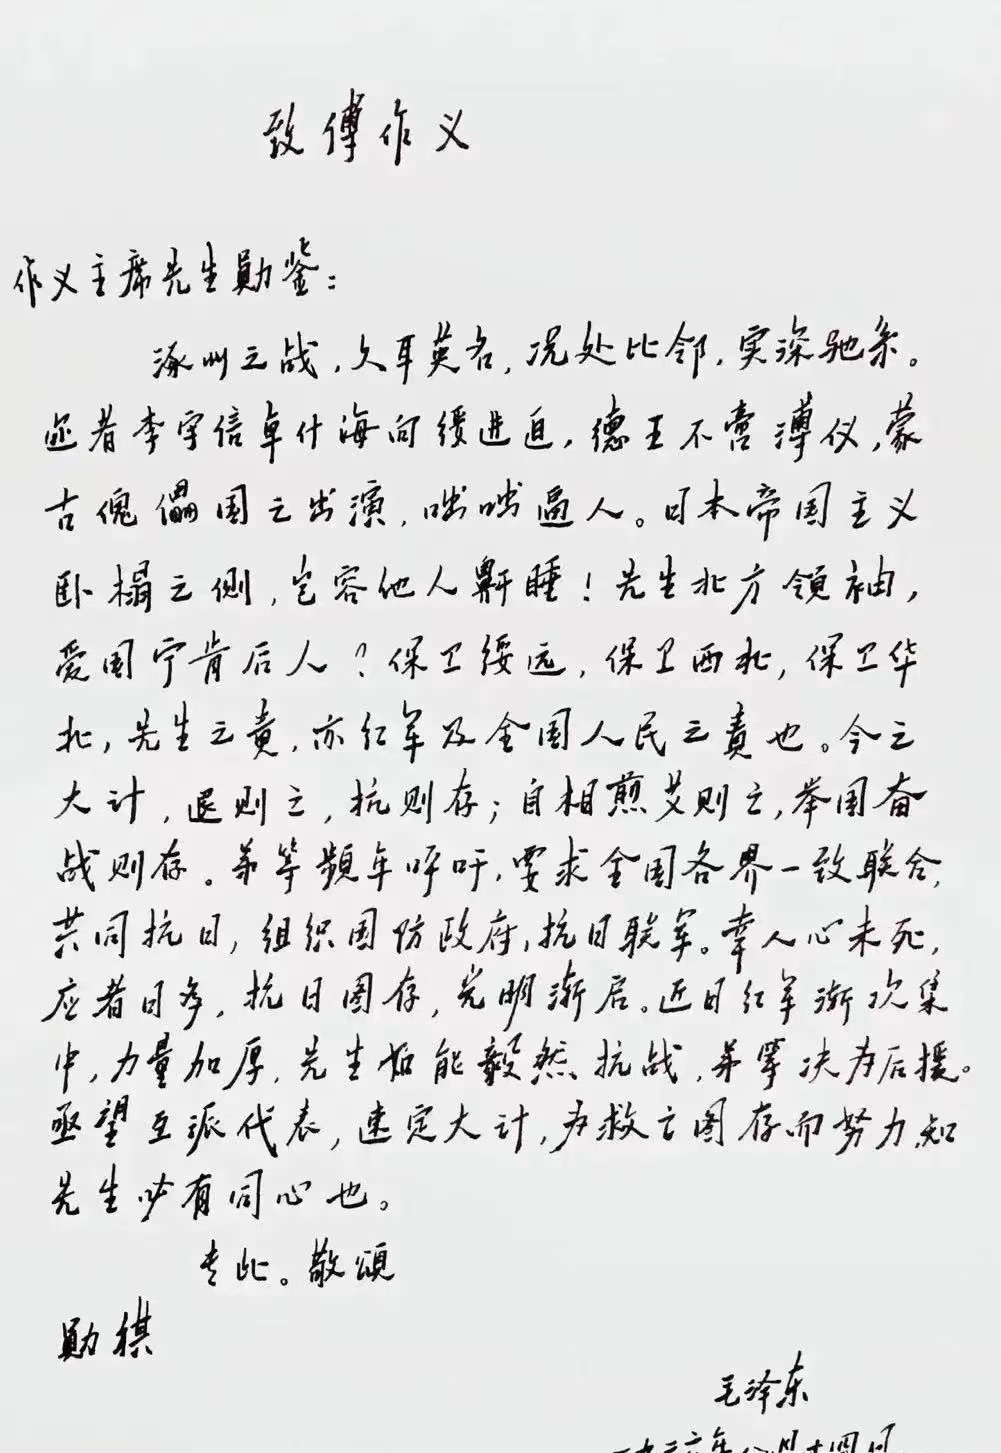 致傅作义
作义主席先生勛鉴：
涿州之战，久耳英名，况处比邻，实深驰系。
迩者李守信卓什海向绥进迫，德王不啻溥仪，蒙
古傀儡国之出演，咄咄逼人。日本帝国主义
卧榻之侧，岂容他人鼾睡！先生北方领袖，
爱国宁肯后人？保卫绥远，保卫西北，保卫华
北，先生之责，亦红军及全国人民之责也。今之
大计，退则亡，抗则存；自相煎艾则亡，举国奋
战则存。弟等频年呼吁，要求全国各界一致联合，
共同抗日，组织国防政府，抗日联军。幸人心未死，
应者日多，抗日图存，光明渐启。近日红军渐次集
中，力量加厚，先生如能毅然抗战，弟等决为后援。
亟望互派代表，速定大计，为救亡图存而努力，知
先生必有同心也。
专此。敬頌
勛祺
毛泽东
一九三六年八月十四日